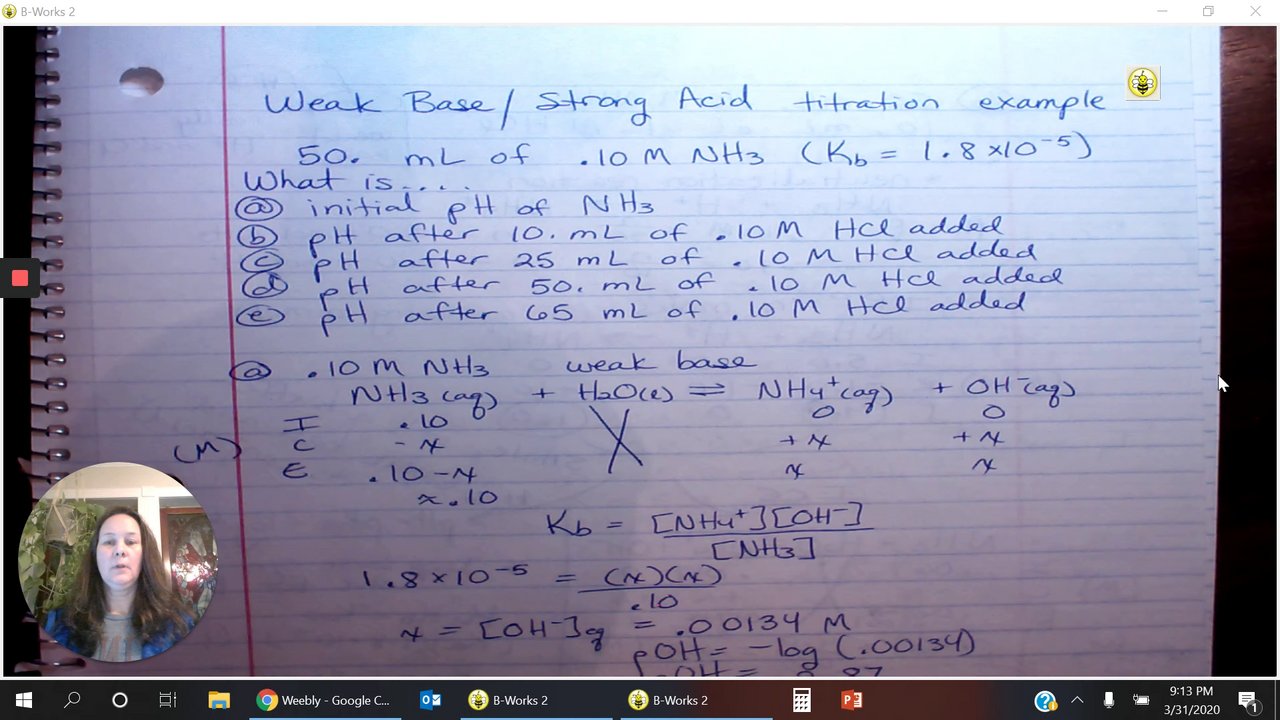 B-Works 2
Weak Base / Strong Acid titration example
50. mL of .10 M NH3 (Kb = 1.8 ×10⁻⁵)
What is....
ⓐ initial pH of NH3
ⓑ pH after 10. mL of .10 M HCl added
ⓒ pH after 25 mL of .10 M HCl added
ⓓ pH after 50. mL of .10 M HCl added
ⓔ pH after 65 mL of .10 M HCl added
ⓐ .10 M NH3 weak base
NH3 (aq) + H2O(l) ⇌ NH4⁺(aq) + OH⁻(aq)
I .10 0 0
(M) C - x + x + x
E .10 - x x x
≈ .10
Kb = [NH4⁺][OH⁻]
[NH3]
1.8 × 10⁻⁵ = (x)(x)
.10
x = [OH⁻]eq = .00134 M
pOH = -log (.00134)
pOH = 2.87
Weebly - Google C... B-Works 2 B-Works 2 9:13 PM
3/31/2020 1